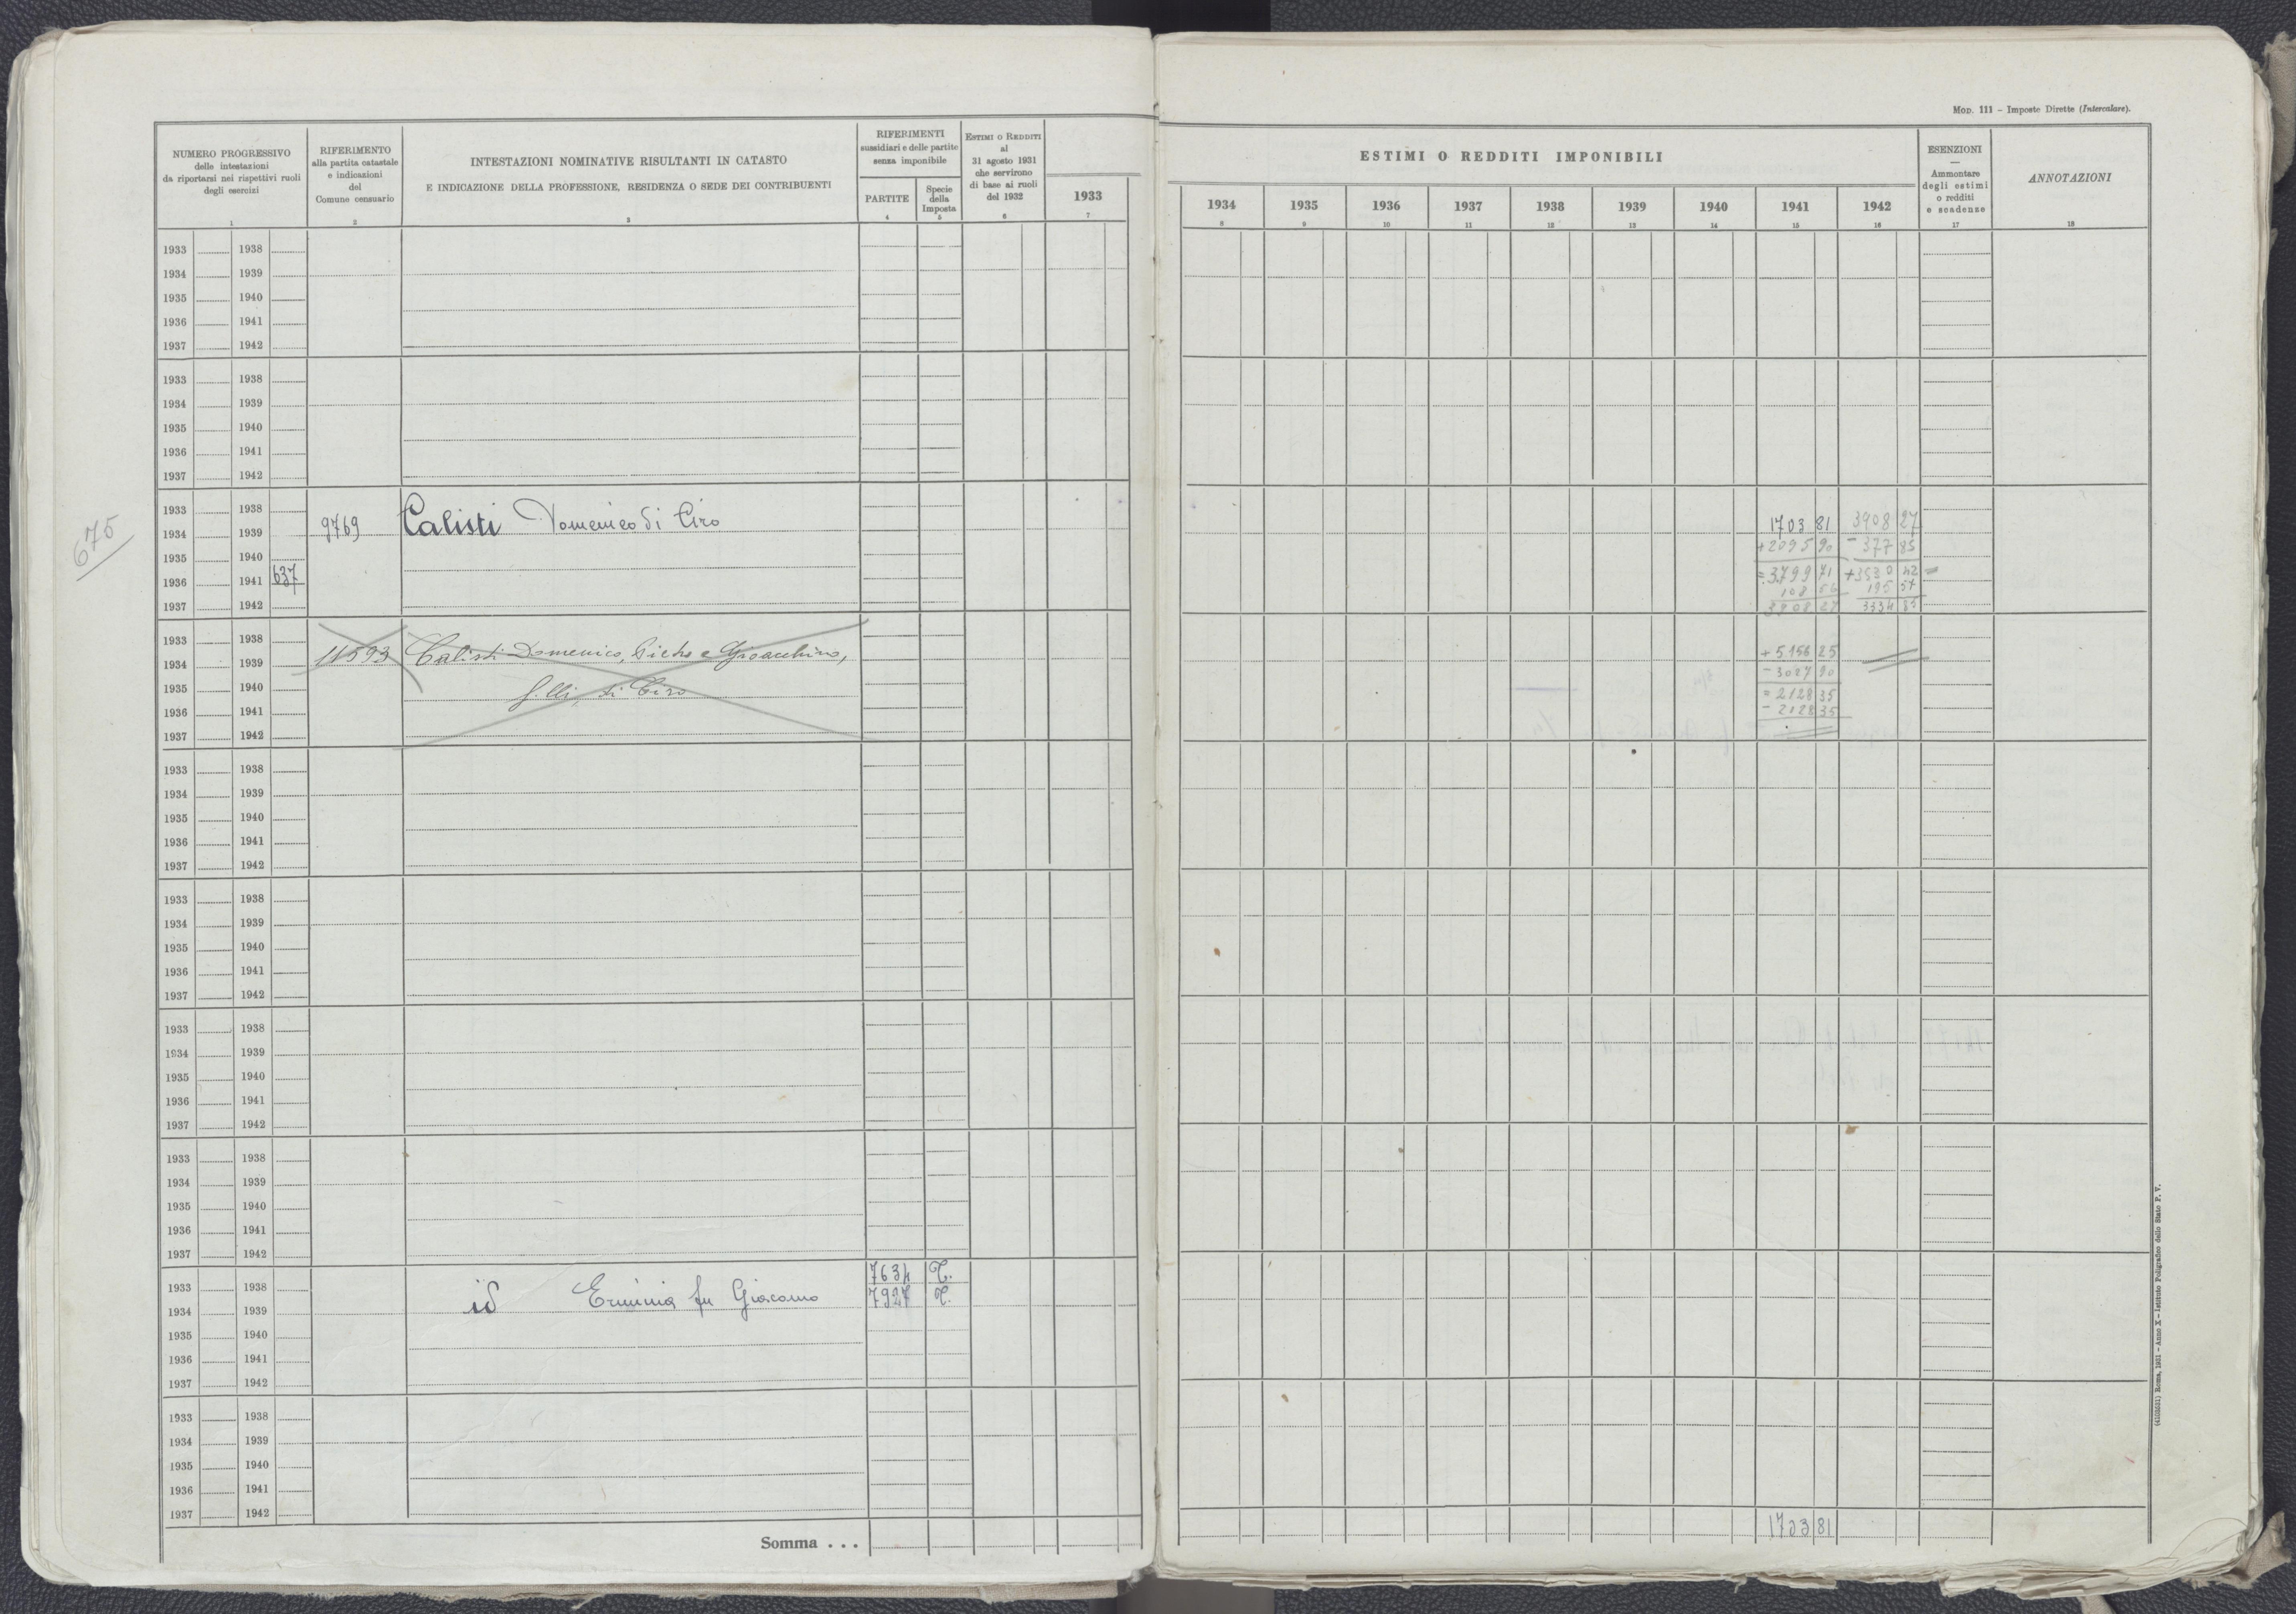 MOD. 111 – Imposte Dirette (Intercalare).
NUMERO PROGRESSIVO
delle intestazioni
da riportarsi nei rispettivi ruoli
degli esercizi
1
RIFERIMENTO
alla partita catastale
e indicazioni
del
Comune censuario
2
INTESTAZIONI NOMINATIVE RISULTANTI IN CATASTO
E INDICAZIONE DELLA PROFESSIONE, RESIDENZA O SEDE DEI CONTRIBUENTI
3
RIFERIMENTI
sussidiari e delle partite
senza imponibile
PARTITE
4
Specie
della
Imposta
5
ESTIMI O REDDITI
al
31 agosto 1931
che servirono
di base ai ruoli
del 1932
6
1933
7
ESTIMI O REDDITI IMPONIBILI
1934 1935 1936 1937 1938 1939 1940 1941 1942
8 9 10 11 12 13 14 15 16
ESENZIONI
—
Ammontare
degli estimi
o redditi
e scadenze
17
ANNOTAZIONI
18
1933 1938
1934 1939
1935 1940
1936 1941
1937 1942
1933 1938
1934 1939
1935 1940
1936 1941
1937 1942
675
1933 1938
1934 1939 9769 Calisti Domenico di Ciro 1703 81 3908 27
1935 1940 +2095 90 - 377 85
1936 1941 637 =3799 71 +3530 42 =
108 56 195 57
1937 1942 3908 27 3334 85
1933 1938
1934 1939 11593 Calisti Domenico, Pietro e Gioacchino, +5156 25
1935 1940 f.lli, di Ciro -3027 90
= 2128 35
1936 1941 - 2128 35
1937 1942
1933 1938
1934 1939
1935 1940
1936 1941
1937 1942
1933 1938
1934 1939
1935 1940
1936 1941
1937 1942
1933 1938
1934 1939
1935 1940
1936 1941
1937 1942
1933 1938
1934 1939
1935 1940
1936 1941
1937 1942
7634 T.
1933 1938
1934 1939 id Erminia fu Giacomo 7927 T.
1935 1940
1936 1941
1937 1942
1933 1938
1934 1939
1935 1940
1936 1941
1937 1942
Somma . . . 1703 81
(4103531) Roma, 1931 – Anno X – Istituto Poligrafico dello Stato P. V.